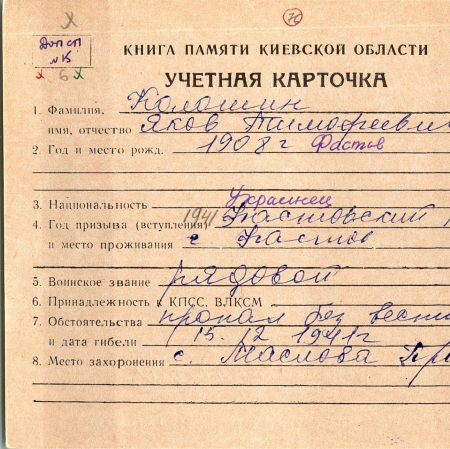 76
Доп сп
№ 15
х 6 х
КНИГА ПАМЯТИ КИЕВСКОЙ ОБЛАСТИ
УЧЕТНАЯ КАРТОЧКА
1. Фамилия, Колошин
имя, отчество Яков Тимофеевич
2. Год и место рожд. 1908 г Фастов
3. Национальность Украинец
4. Год призыва (вступления) 1941 Фастовский
и место проживания г Фастов
5. Воинское звание рядовой
6. Принадлежность к КПСС, ВЛКСМ
7. Обстоятельства пропал без вести
и дата гибели 15.12 1941 г
8. Место захоронения с. Маслова